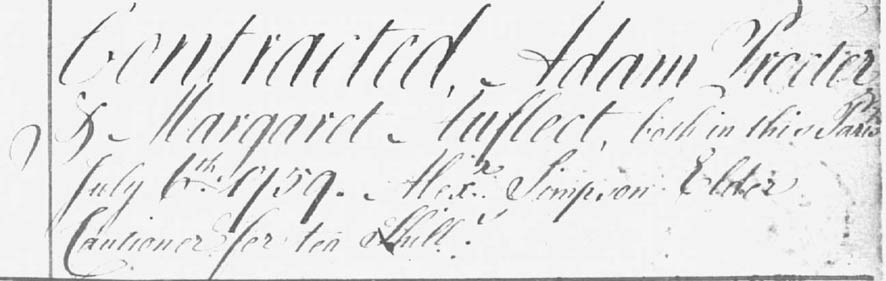 Contracted, Adam Procter
& Margaret Auflect, both in this Parish
July 6th. 1759. Alexr. Simpson Elder
Cautioner for ten Shills.